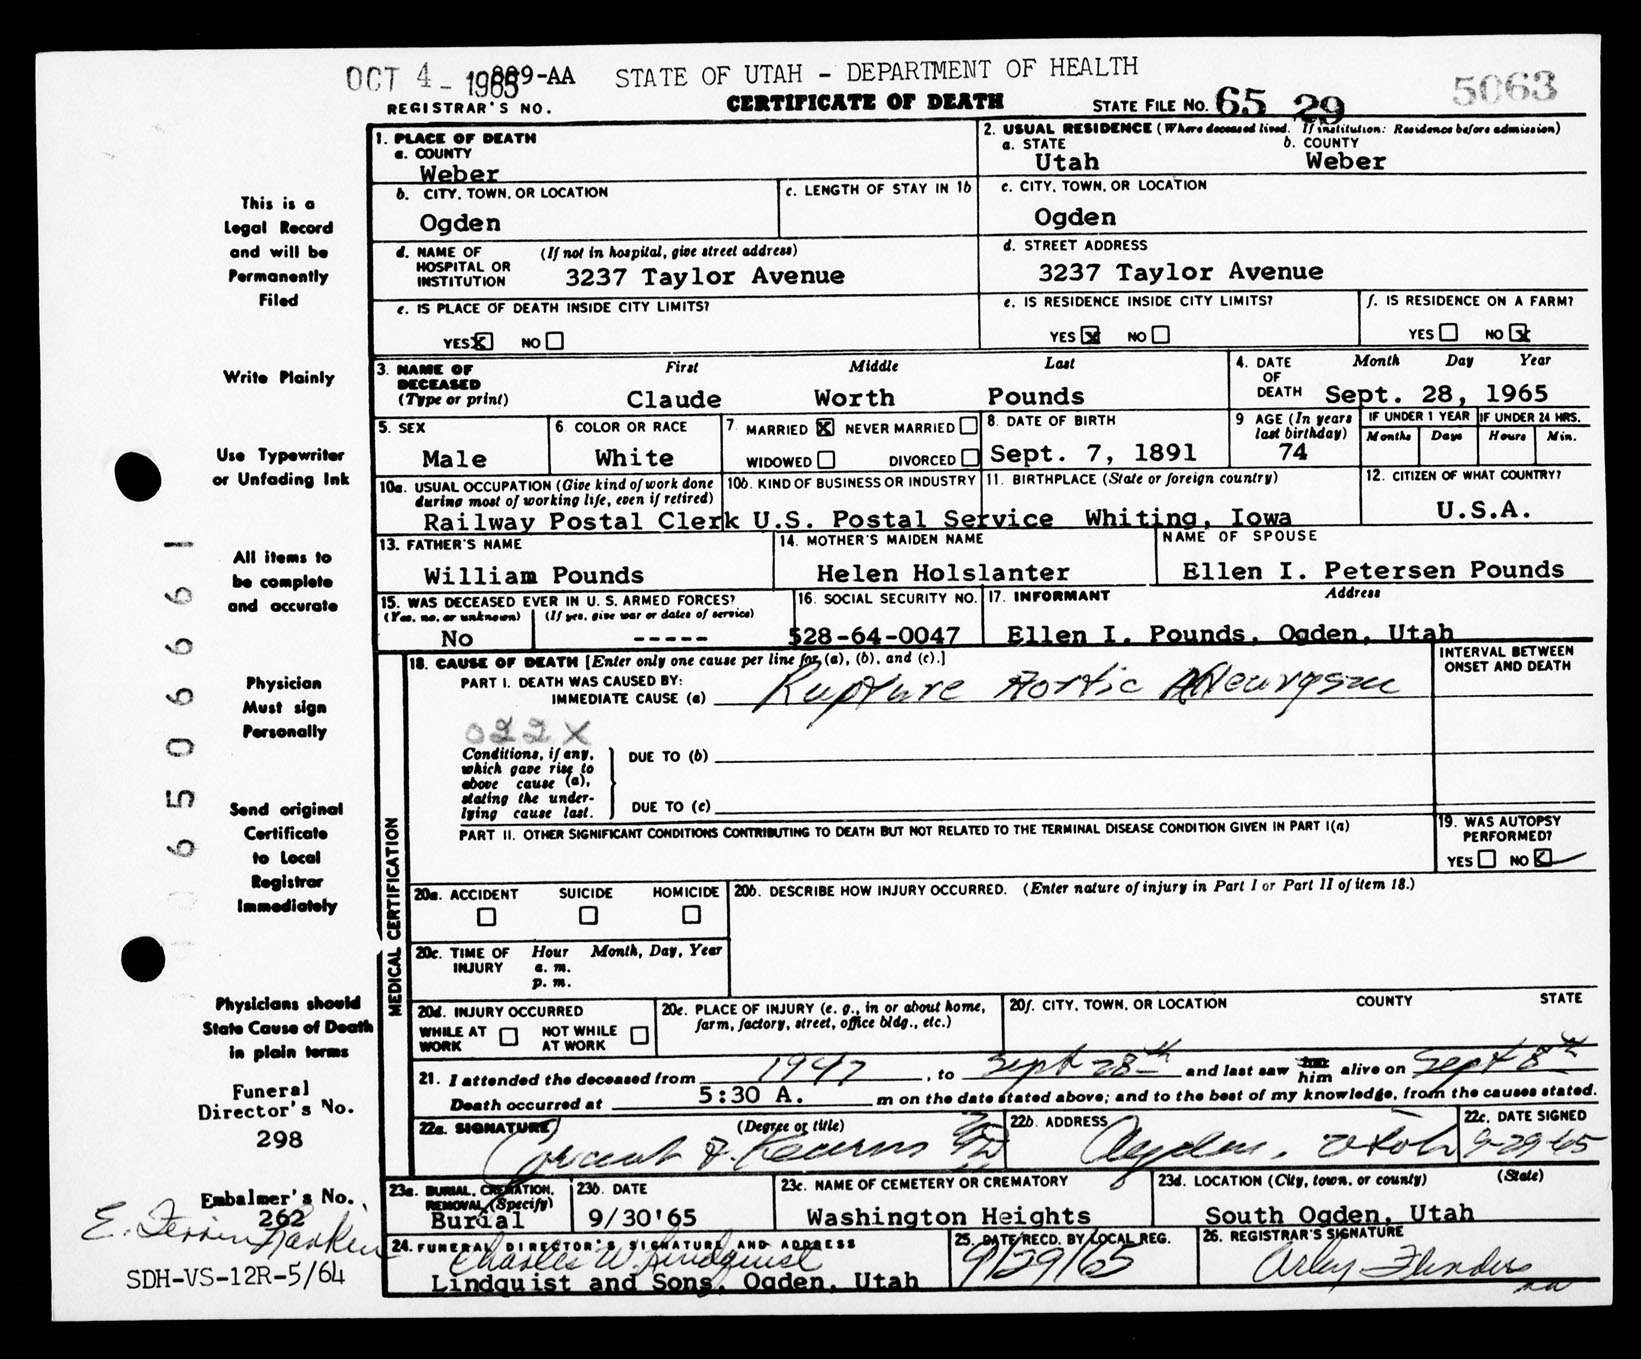 OCT 4 - 1965 889-AA STATE OF UTAH - DEPARTMENT OF HEALTH 5063
REGISTRAR'S NO. CERTIFICATE OF DEATH STATE FILE NO. 65 29
1. PLACE OF DEATH
a. COUNTY
Weber
2. USUAL RESIDENCE (Where deceased lived. If institution: Residence before admission)
a. STATE b. COUNTY
Utah Weber
b. CITY, TOWN, OR LOCATION
Ogden
c. LENGTH OF STAY IN 1b
c. CITY, TOWN, OR LOCATION
Ogden
d. NAME OF HOSPITAL OR INSTITUTION
(If not in hospital, give street address)
3237 Taylor Avenue
d. STREET ADDRESS
3237 Taylor Avenue
e. IS PLACE OF DEATH INSIDE CITY LIMITS?
YES X NO
e. IS RESIDENCE INSIDE CITY LIMITS?
YES X NO
f. IS RESIDENCE ON A FARM?
YES NO X
3. NAME OF DECEASED (Type or print)
First Middle Last
Claude Worth Pounds
4. DATE OF DEATH
Month Day Year
Sept. 28, 1965
5. SEX
Male
6. COLOR OR RACE
White
7. MARRIED X NEVER MARRIED
WIDOWED DIVORCED
8. DATE OF BIRTH
Sept. 7, 1891
9 AGE (In years last birthday)
74
IF UNDER 1 YEAR IF UNDER 24 HRS.
Months Days Hours Min.
10a. USUAL OCCUPATION (Give kind of work done during most of working life, even if retired)
Railway Postal Clerk
10b. KIND OF BUSINESS OR INDUSTRY
U.S. Postal Service
11. BIRTHPLACE (State or foreign country)
Whiting, Iowa
12. CITIZEN OF WHAT COUNTRY?
U.S.A.
13. FATHER'S NAME
William Pounds
14. MOTHER'S MAIDEN NAME
Helen Holslanter
NAME OF SPOUSE
Ellen I. Petersen Pounds
15. WAS DECEASED EVER IN U. S. ARMED FORCES?
(Yes, no, or unknown) (If yes, give war or dates of service)
No -----
16. SOCIAL SECURITY NO.
528-64-0047
17. INFORMANT Address
Ellen I. Pounds, Ogden, Utah
MEDICAL CERTIFICATION
18. CAUSE OF DEATH [Enter only one cause per line for (a), (b), and (c).]
INTERVAL BETWEEN ONSET AND DEATH
PART I. DEATH WAS CAUSED BY:
IMMEDIATE CAUSE (a) Rupture Aortic Aneurysm
022X
Conditions, if any, which gave rise to above cause (a), stating the underlying cause last.
DUE TO (b)
DUE TO (c)
PART II. OTHER SIGNIFICANT CONDITIONS CONTRIBUTING TO DEATH BUT NOT RELATED TO THE TERMINAL DISEASE CONDITION GIVEN IN PART I(a)
19. WAS AUTOPSY PERFORMED?
YES NO
20a. ACCIDENT SUICIDE HOMICIDE
20b. DESCRIBE HOW INJURY OCCURRED. (Enter nature of injury in Part I or Part II of item 18.)
20c. TIME OF INJURY
Hour Month, Day, Year
a. m.
p. m.
20d. INJURY OCCURRED
WHILE AT WORK NOT WHILE AT WORK
20e. PLACE OF INJURY (e. g., in or about home, farm, factory, street, office bldg., etc.)
20f. CITY, TOWN, OR LOCATION COUNTY STATE
21. I attended the deceased from 1947, to Sept 28th and last saw him alive on Sept 8th
Death occurred at 5:30 A. m on the date stated above; and to the best of my knowledge, from the causes stated.
22a. SIGNATURE (Degree or title)
Kearns MD
22b. ADDRESS
Ogden, Utah
22c. DATE SIGNED
9-29-65
23a. BURIAL, CREMATION, REMOVAL (Specify)
Burial
23b. DATE
9/30'65
23c. NAME OF CEMETERY OR CREMATORY
Washington Heights
23d. LOCATION (City, town, or county) (State)
South Ogden, Utah
24. FUNERAL DIRECTOR'S SIGNATURE AND ADDRESS
Charles W Lindquist
Lindquist and Sons, Ogden, Utah
25. DATE RECD. BY LOCAL REG.
9/29/65
26. REGISTRAR'S SIGNATURE
Arley Flinders
This is a
Legal Record
and will be
Permanently
Filed
Write Plainly
Use Typewriter
or Unfading Ink
All items to
be complete
and accurate
Physician
Must sign
Personally
Send original
Certificate
to Local
Registrar
Immediately
Physicians should
State Cause of Death
in plain terms
Funeral
Director's No.
298
Embalmer's No.
262
SDH-VS-12R-5/64